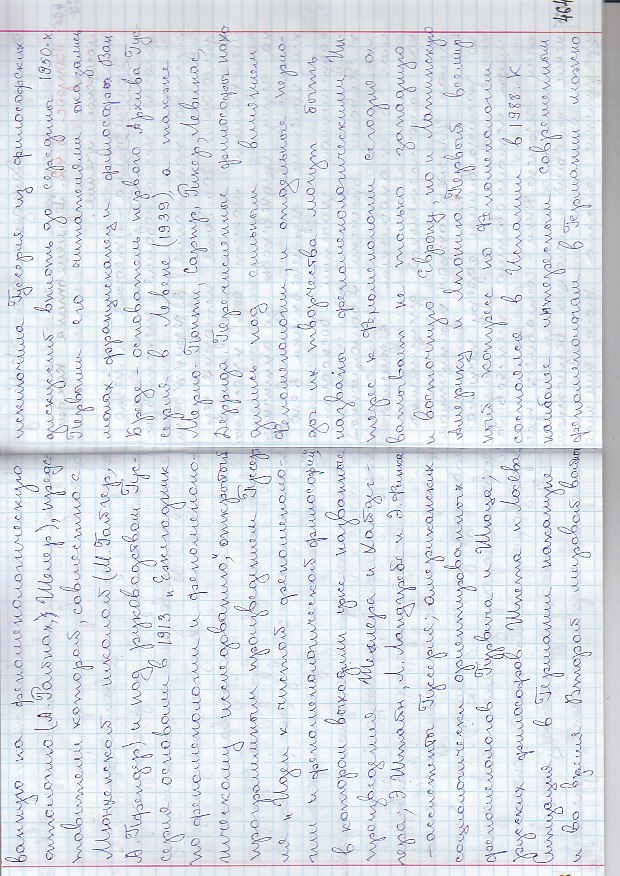 ванную на феноменологическую
онтологию (А. Райнах, Шелер), предс-
тавители которой, совместно с
Мюнхенской школой (М. Гайгер,
А. Пфендер) и под руководством Гус-
серля основали в 1913 "Ежегодник
по феноменологии и феноменоло-
гическому исследованию", открытый
программным произведением Гуссер
ля "Идеи к чистой феноменоло-
гии и феноменологической философии"
в котором выходили уже названные
произведения Шелера и Хайдег-
гера; Э. Штайн, Л. Ландгребе и Э. Финка
- ассистенты Гуссерля; американских
социологически ориентированных
феноменологов Гурвича и Шюца;
русских философов Шпета и Лосева
Ситуация в Германии накануне
и во время Второй мировой войны
исключила Гуссерля из философских
дискуссий вплоть до середины 1950-х
Первыми его читателями оказались
монах-францисканец и философ Ван
Бреда - основатель первого Архива Гус-
серля в Лёвене (1939), а также
Мерло-Понти, Сартр, Рикер, Левинас,
Деррида. Перечисленные философы нахо
дились под сильным влиянием
феноменологии, и отдельные перио-
ды их творчества могут быть
названы феноменологическими. Ин-
терес к феноменологии сегодня ох
ватывает не только западную
и восточную Европу, но и Латинскую
Америку и Японию. Первый всемир-
ный конгресс по феноменологии
состоялся в Испании в 1988. К
наиболее интересным современным
феноменологам в Германии можно
464